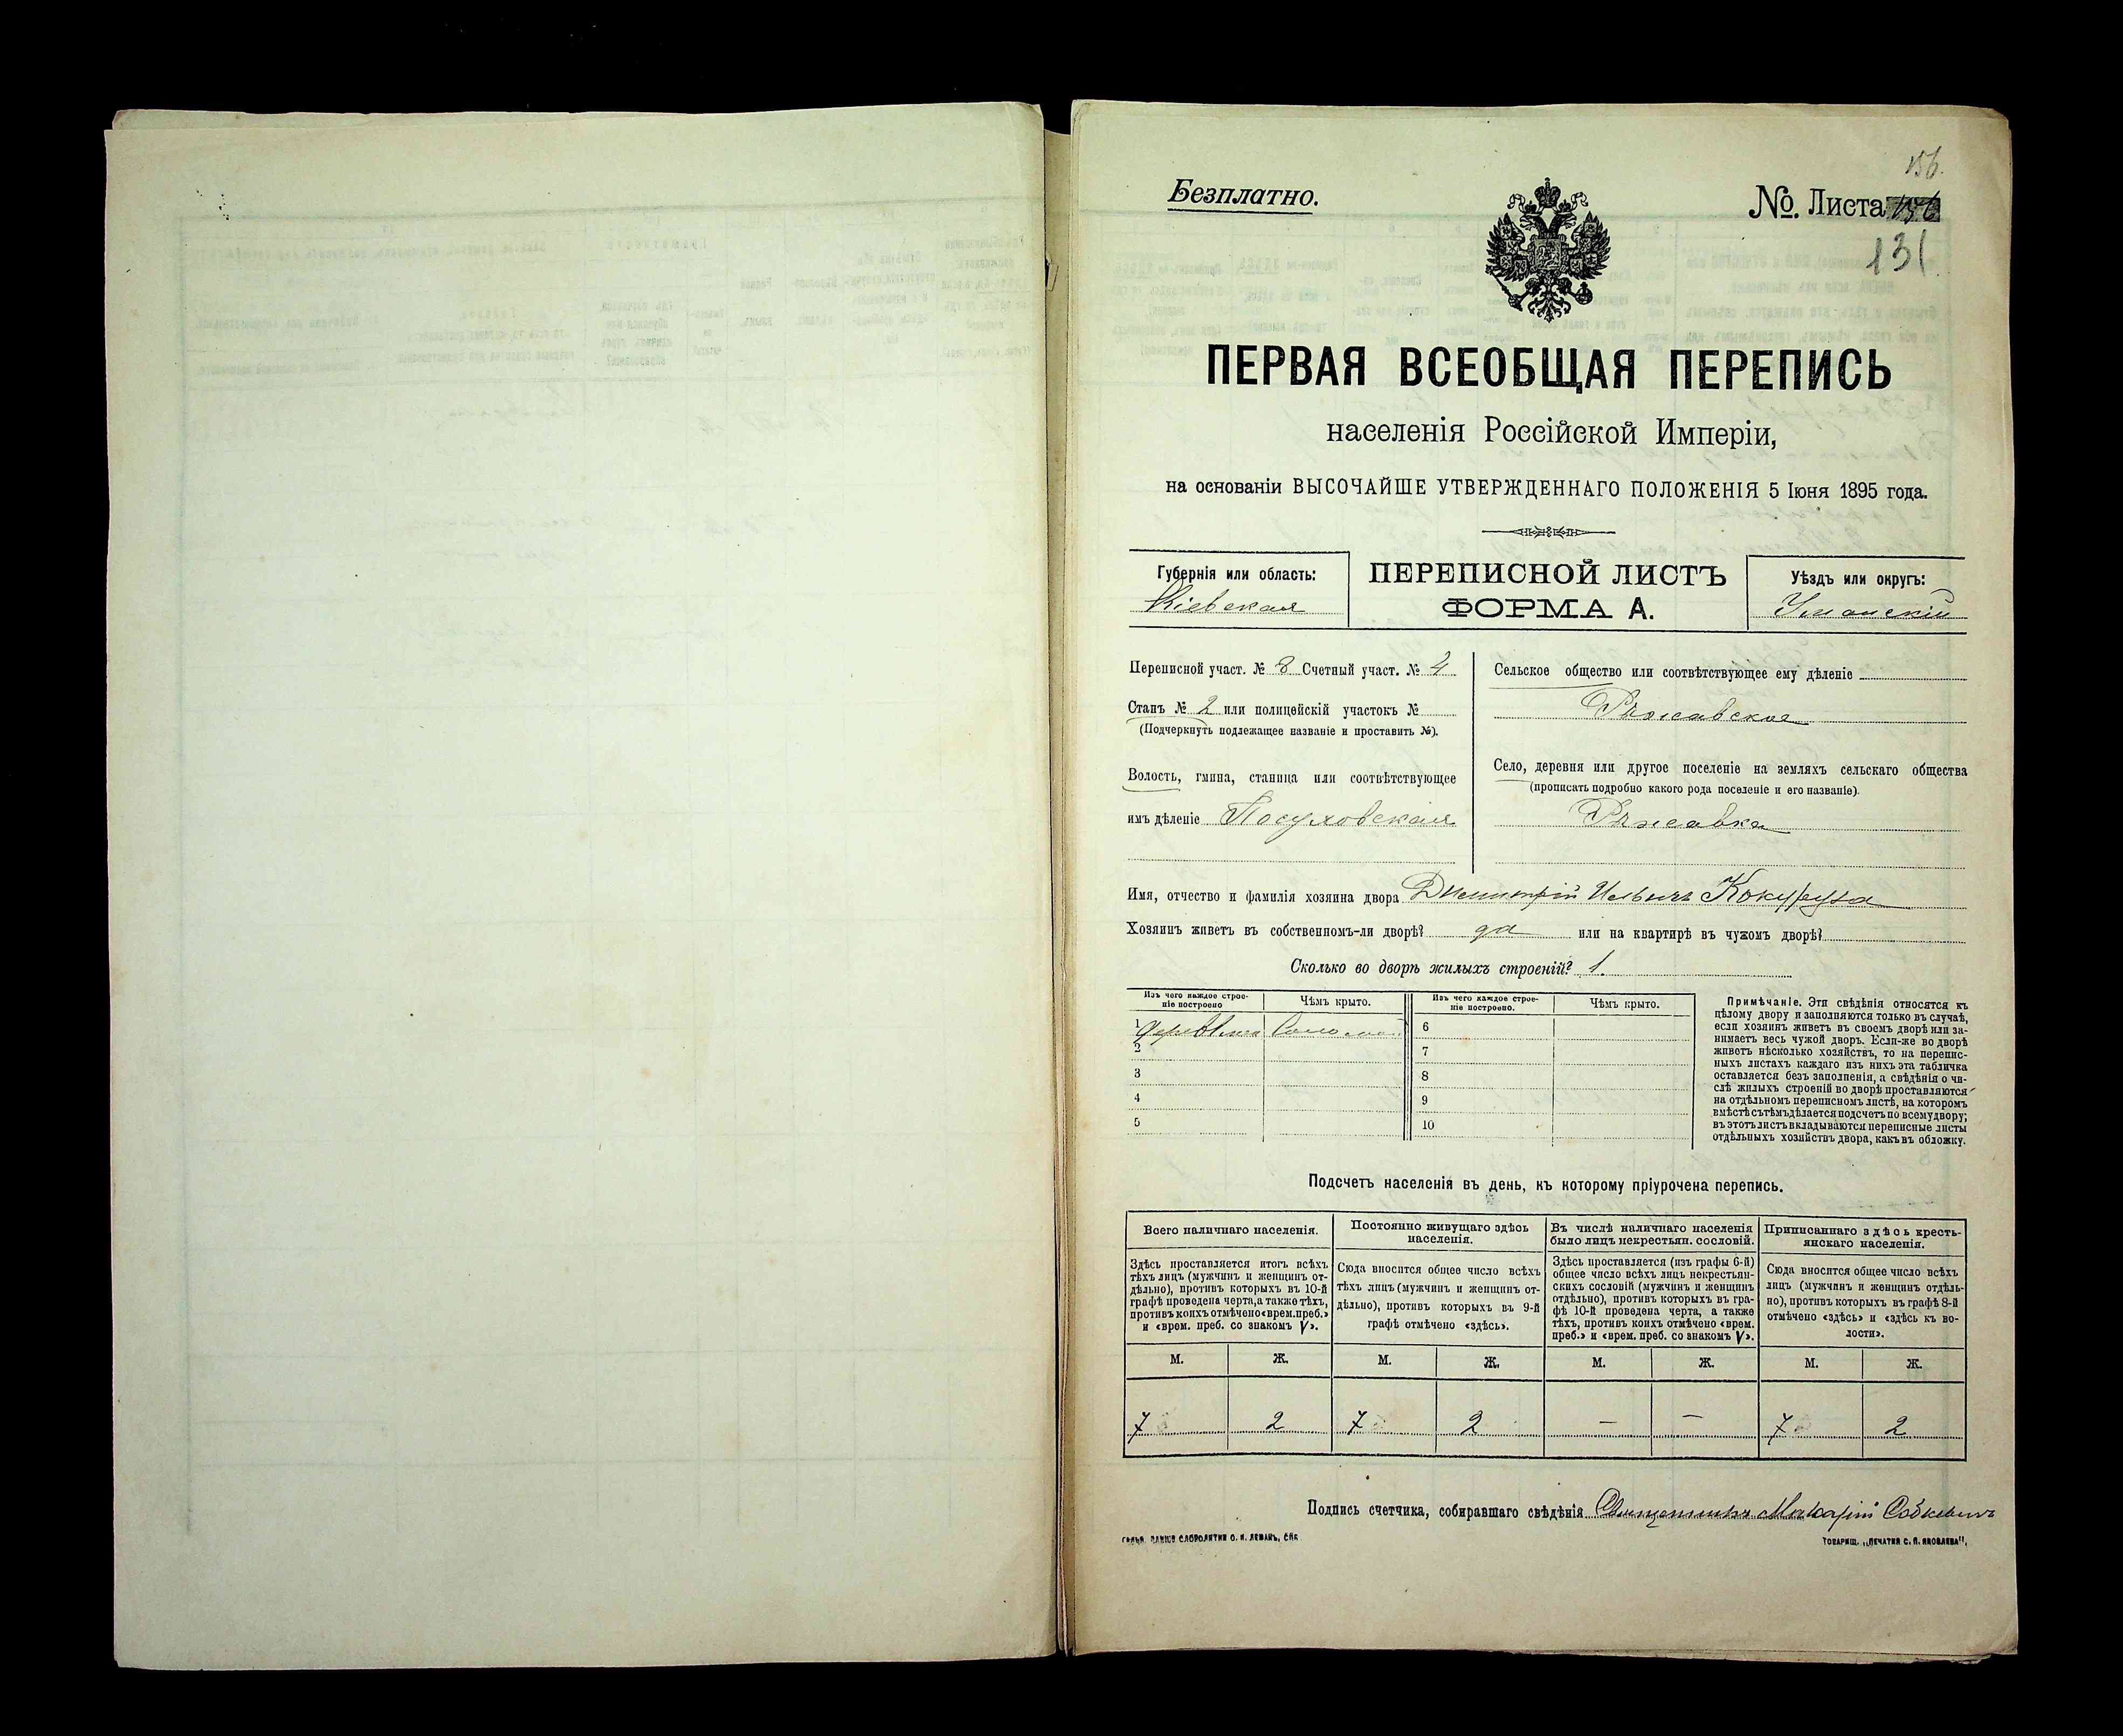 156.
Безплатно.
№. Листа 156
131
ПЕРВАЯ ВСЕОБЩАЯ ПЕРЕПИСЬ
населенія Россійской Имперіи,
на основаніи ВЫСОЧАЙШЕ УТВЕРЖДЕННАГО ПОЛОЖЕНІЯ 5 Іюня 1895 года.
Губернія или область:
Кіевская
ПЕРЕПИСНОЙ ЛИСТЪ
ФОРМА А.
Уѣздъ или округъ:
Уманскій
Переписной участ. № 8 Счетный участ. № 4
Станъ № 2 или полицейскій участокъ №
(Подчеркнуть подлежащее названіе и проставить №).
Волость, гмина, станица или соотвѣтствующее
имъ дѣленіе
Сельское общество или соотвѣтствующее ему дѣленіе
Ряжавское
Село, деревня или другое поселеніе на земляхъ сельскаго общества
(прописать подробно какого рода поселеніе и его названіе).
Ряжавка
Имя, отчество и фамилія хозяина двора Димитрій Ильичъ
Хозяинъ живетъ въ собственномъ-ли дворѣ? да или на квартирѣ въ чужомъ дворѣ?
Сколько во дворѣ жилыхъ строеній? 1.
Изъ чего каждое строе-
ніе построено
Чѣмъ крыто.
Изъ чего каждое строе-
ніе построено.
Чѣмъ крыто.
1
2
3
4
5
6
7
8
9
10
Примѣчаніе. Эти свѣдѣнія относятся къ
цѣлому двору и заполняются только въ случаѣ,
если хозяинъ живетъ въ своемъ дворѣ или за-
нимаетъ весь чужой дворъ. Если-же во дворѣ
живетъ нѣсколько хозяйствъ, то на перепис-
ныхъ листахъ каждаго изъ нихъ эта табличка
оставляется безъ заполненія, а свѣдѣнія о чи-
слѣ жилыхъ строеній во дворѣ проставляются
на отдѣльномъ переписномъ листѣ, на которомъ
вмѣстѣ съ тѣмъ дѣлается подсчетъ по всему двору;
въ этотъ листъ вкладываются переписные листы
отдѣльныхъ хозяйствъ двора, какъ въ обложку.
Подсчетъ населенія въ день, къ которому пріурочена перепись.
Всего наличнаго населенія.
Здѣсь проставляется итогъ всѣхъ
тѣхъ лицъ (мужчинъ и женщинъ от-
дѣльно), противъ которыхъ въ 10-й
графѣ проведена черта, а также тѣхъ,
противъ коихъ отмѣчено «врем. преб.»
и «врем. преб. со знакомъ V».
Постоянно живущаго здѣсь
населенія.
Сюда вносится общее число всѣхъ
тѣхъ лицъ (мужчинъ и женщинъ от-
дѣльно), противъ которыхъ въ 9-й
графѣ отмѣчено «здѣсь».
Въ числѣ наличнаго населенія
было лицъ некрестьян. сословій.
Здѣсь проставляется (изъ графы 6-й)
общее число всѣхъ лицъ некрестьян-
скихъ сословій (мужчинъ и женщинъ
отдѣльно), противъ которыхъ въ гра-
фѣ 10-й проведена черта, а также
тѣхъ, противъ коихъ отмѣчено «врем.
преб.» и «врем. преб. со знакомъ V».
Приписаннаго здѣсь кресть-
янскаго населенія.
Сюда вносится общее число всѣхъ
лицъ (мужчинъ и женщинъ отдѣль-
но), противъ которыхъ въ графѣ 8-й
отмѣчено «здѣсь» и «здѣсь къ во-
лости».
М. Ж. М. Ж. М. Ж. М. Ж.
7 2 7 2 — — 7 2
Подпись счетчика, собиравшаго свѣдѣнія Священникъ Макарій Собкевичъ
ТОВАРИЩ. „ПЕЧАТНЯ С. П. ЯКОВЛЕВА",